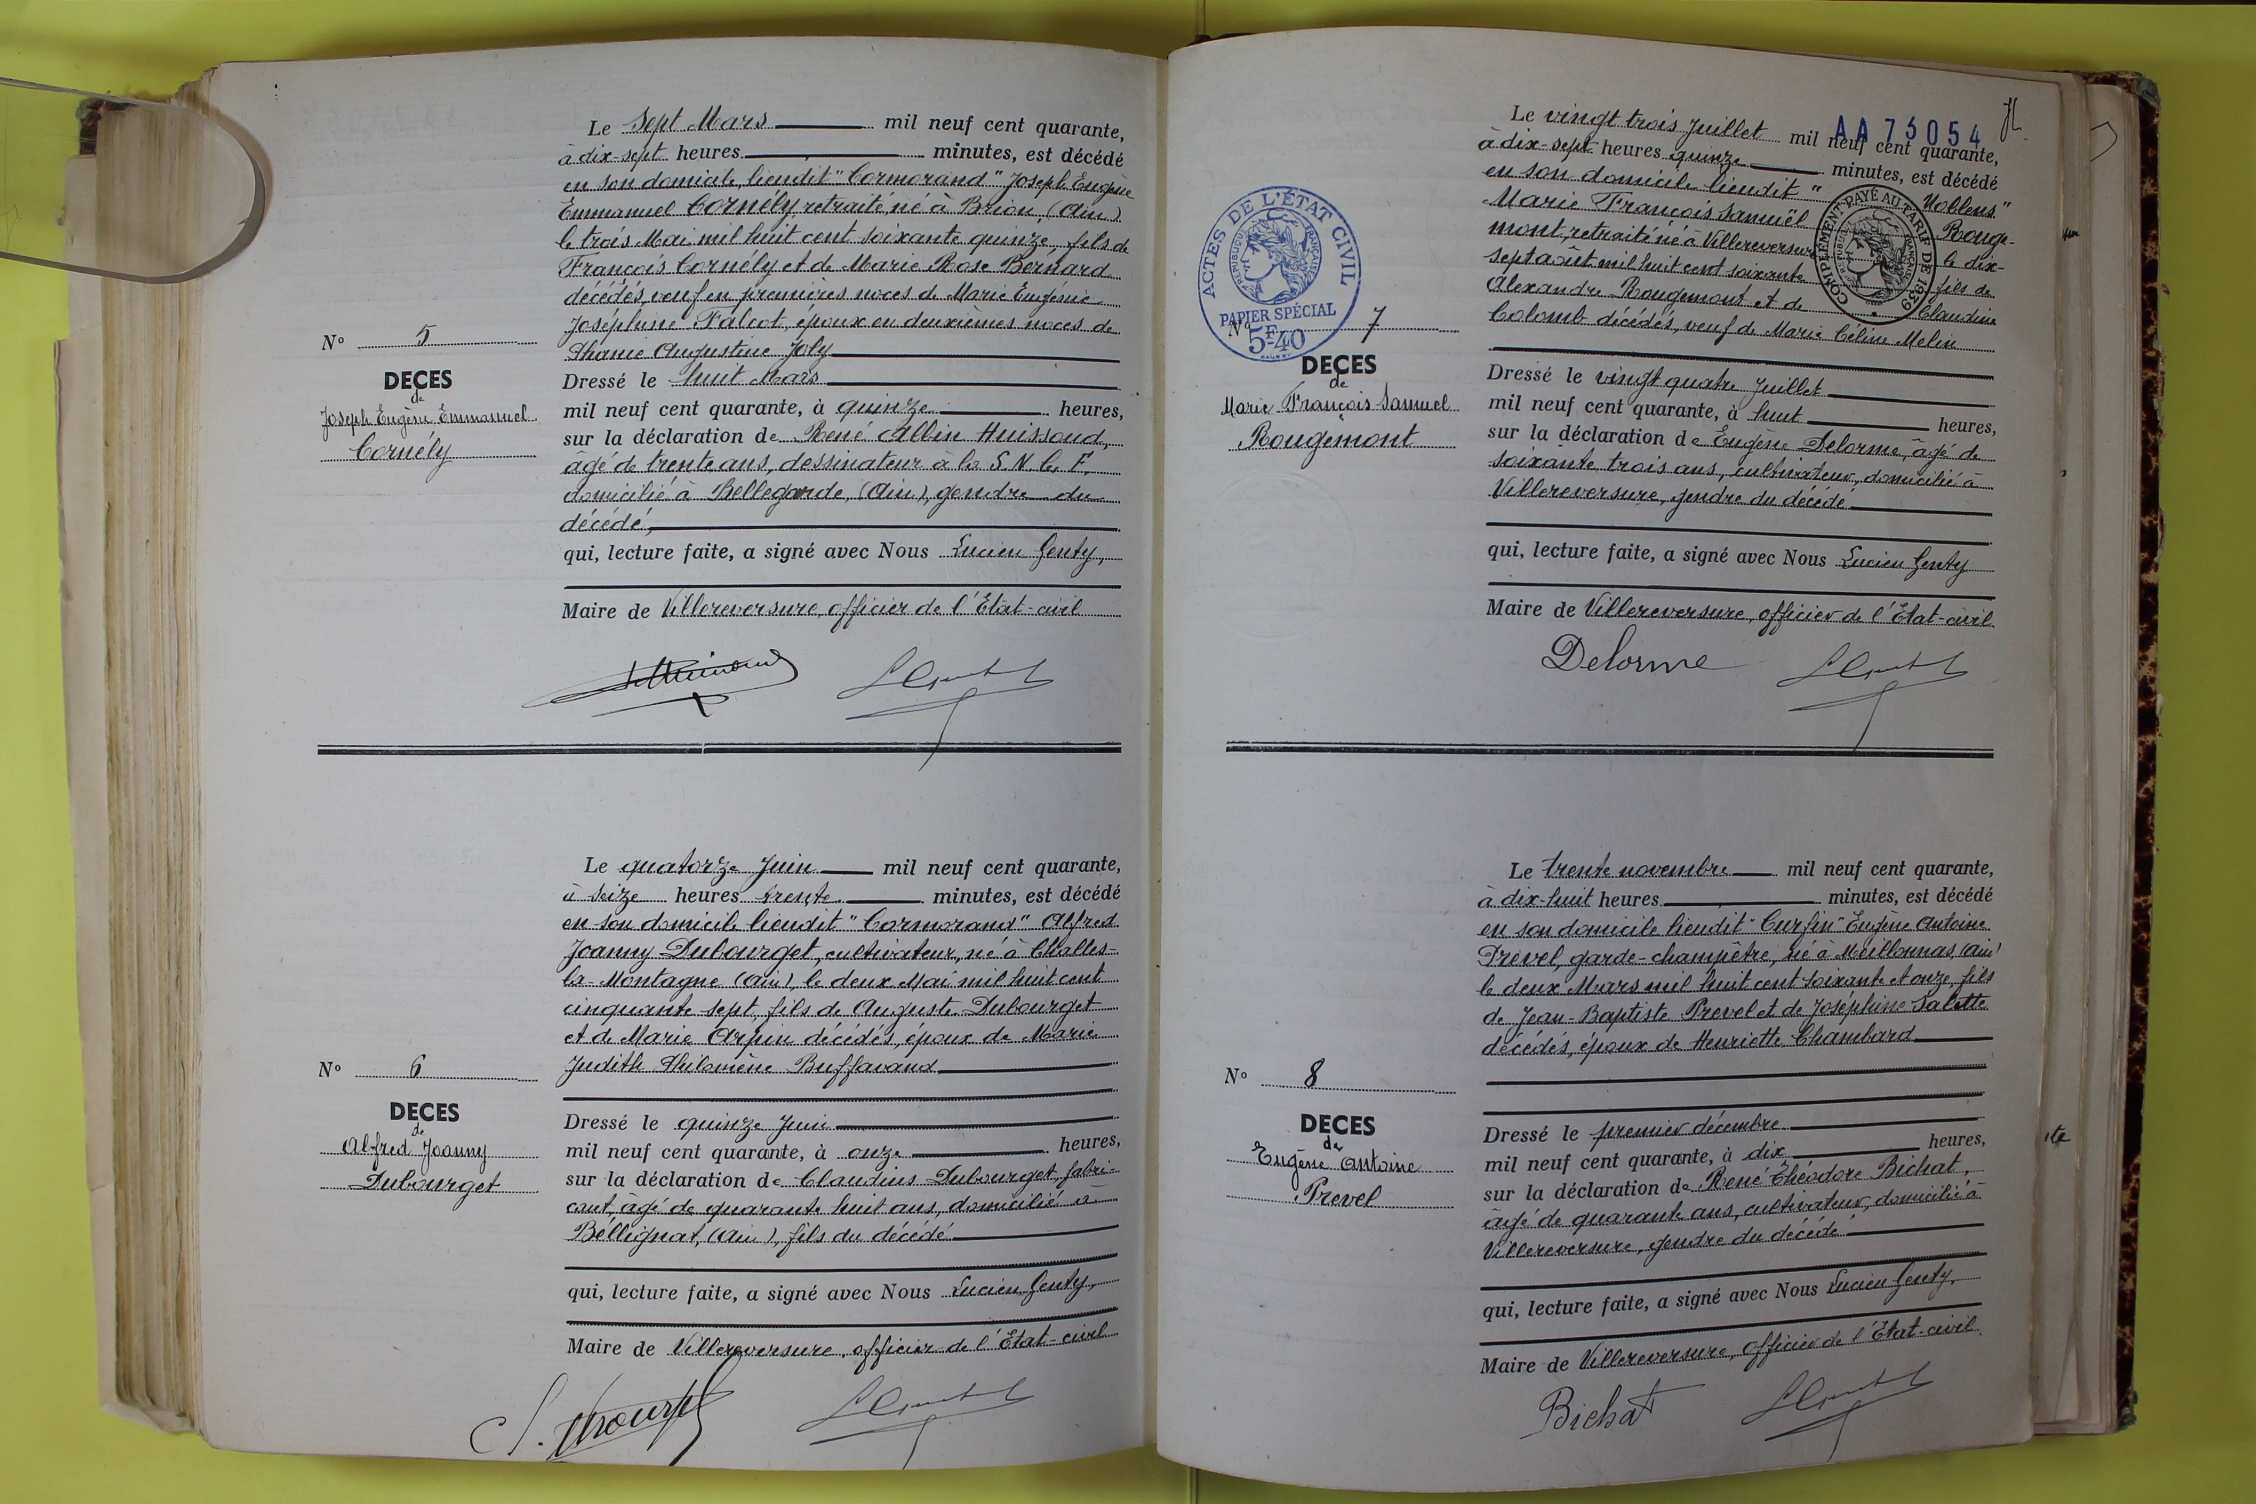 Le sept Mars mil neuf cent quarante,
à dix-sept heures minutes, est décédé
en son domicile, lieudit "Cormorand" Joseph Eugène
Emmanuel Cornély, retraité né à Brion, (Ain)
le trois Mai mil huit cent soixante quinze, fils de
François Cornély et de Marie Rose Bernard
décédés, veuf en premières noces de Marie Eugénie
Joséphine Falcot, époux en deuxièmes noces de
Augustine Joly
N° 5
DECES
de
Joseph Eugène Emmanuel
Cornély
Dressé le huit Mars
mil neuf cent quarante, à quinze heures,
sur la déclaration de René Albin Huissoud,
âgé de trente ans, dessinateur à la S.N.C.F.
domicilié à Bellegarde, (Ain), gendre du
décédé,
qui, lecture faite, a signé avec Nous Lucien Genty,
Maire de Villereversure, officier de l'Etat-civil
Le quatorze Juin mil neuf cent quarante,
à seize heures trente minutes, est décédé
en son domicile lieudit "Cormorand" Alfred
Joanny Dubourget, cultivateur, né à Challes-
la-Montagne (Ain), le deux Mai mil huit cent
cinquante-sept, fils de Auguste Dubourget
et de Marie Arpin décédés, époux de Marie
Judith Philomène Buffavand
N° 6
DECES
de
Alfred Joanny
Dubourget
Dressé le quinze Juin
mil neuf cent quarante, à onze heures,
sur la déclaration de Claudius Dubourget fabri-
cant, âgé de quarante huit ans, domicilié à
Béllignat, (Ain), fils du décédé
qui, lecture faite, a signé avec Nous Lucien Genty,
Maire de Villereversure, officier de l'Etat-civil
AA 73054
Le vingt trois Juillet mil neuf cent quarante,
à dix-sept heures quinze minutes, est décédé
en son domicile lieudit "Noblens"
Marie François Samuël Rouge-
mont, retraité né à Villereversure le dix-
sept août mil huit cent soixante fils de
Alexandre Rougemont et de Claudine
Colomb décédés, veuf de Marie Céline Melin
COMPLÉMENT PAYÉ AU TARIF DE 1939
RÉPUBLIQUE FRANÇAISE
ACTES DE L'ÉTAT CIVIL
RÉPUBLIQUE FRANÇAISE
PAPIER SPÉCIAL
5F40
N° 7
DECES
de
Marie François Samuel
Rougemont
Dressé le vingt quatre Juillet
mil neuf cent quarante, à huit heures,
sur la déclaration de Eugène Delorme, âgé de
soixante trois ans, cultivateur, domicilié à
Villereversure, gendre du décédé
qui, lecture faite, a signé avec Nous Lucien Genty
Maire de Villereversure, officier de l'Etat-civil
Delorme
Le trente novembre mil neuf cent quarante,
à dix-huit heures minutes, est décédé
en son domicile lieudit "Curfin" Eugène Antoine
Prevel, garde-champêtre, né à Meillonnas (Ain)
le deux Mars mil huit cent soixante et onze, fils
de Jean-Baptiste Prevel et de Joséphine Salette
décédés, époux de Henriette Chambard
N° 8
DECES
de
Eugène Antoine
Prevel
Dressé le premier décembre
mil neuf cent quarante, à dix heures,
sur la déclaration de René Théodore Bichat,
âgé de quarante ans, cultivateur, domicilié à
Villereversure, gendre du décédé
qui, lecture faite, a signé avec Nous Lucien Genty,
Maire de Villereversure, officier de l'Etat-civil
Bichat